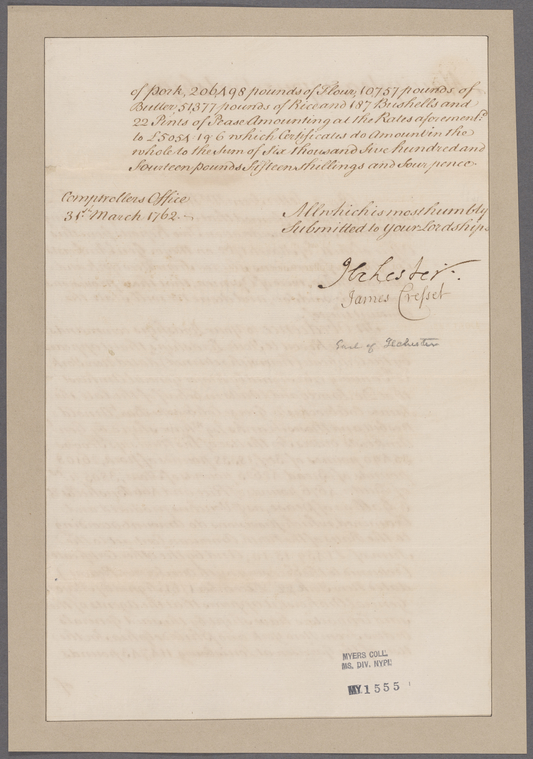 of Pork, 206498 pounds of Flour, 10757 pounds of
Butter, 51377 pounds of Rice and 187 Bushells and
22 Pints of Pease Amounting at the Rates aforement.d
to £5054 19 6 which Certificates do Amount in the
whole to the Sum of Six thousand Five hundred and
Fourteen pounds Fifteen Shillings and Four pence
Comptrollers Office
31st March 1762
All which is most humbly
Submitted to Your Lordships
Ilchester
James Cresset
Earl of Ilchester
MYERS COLL.
MS. DIV. NYPL
MY 1555